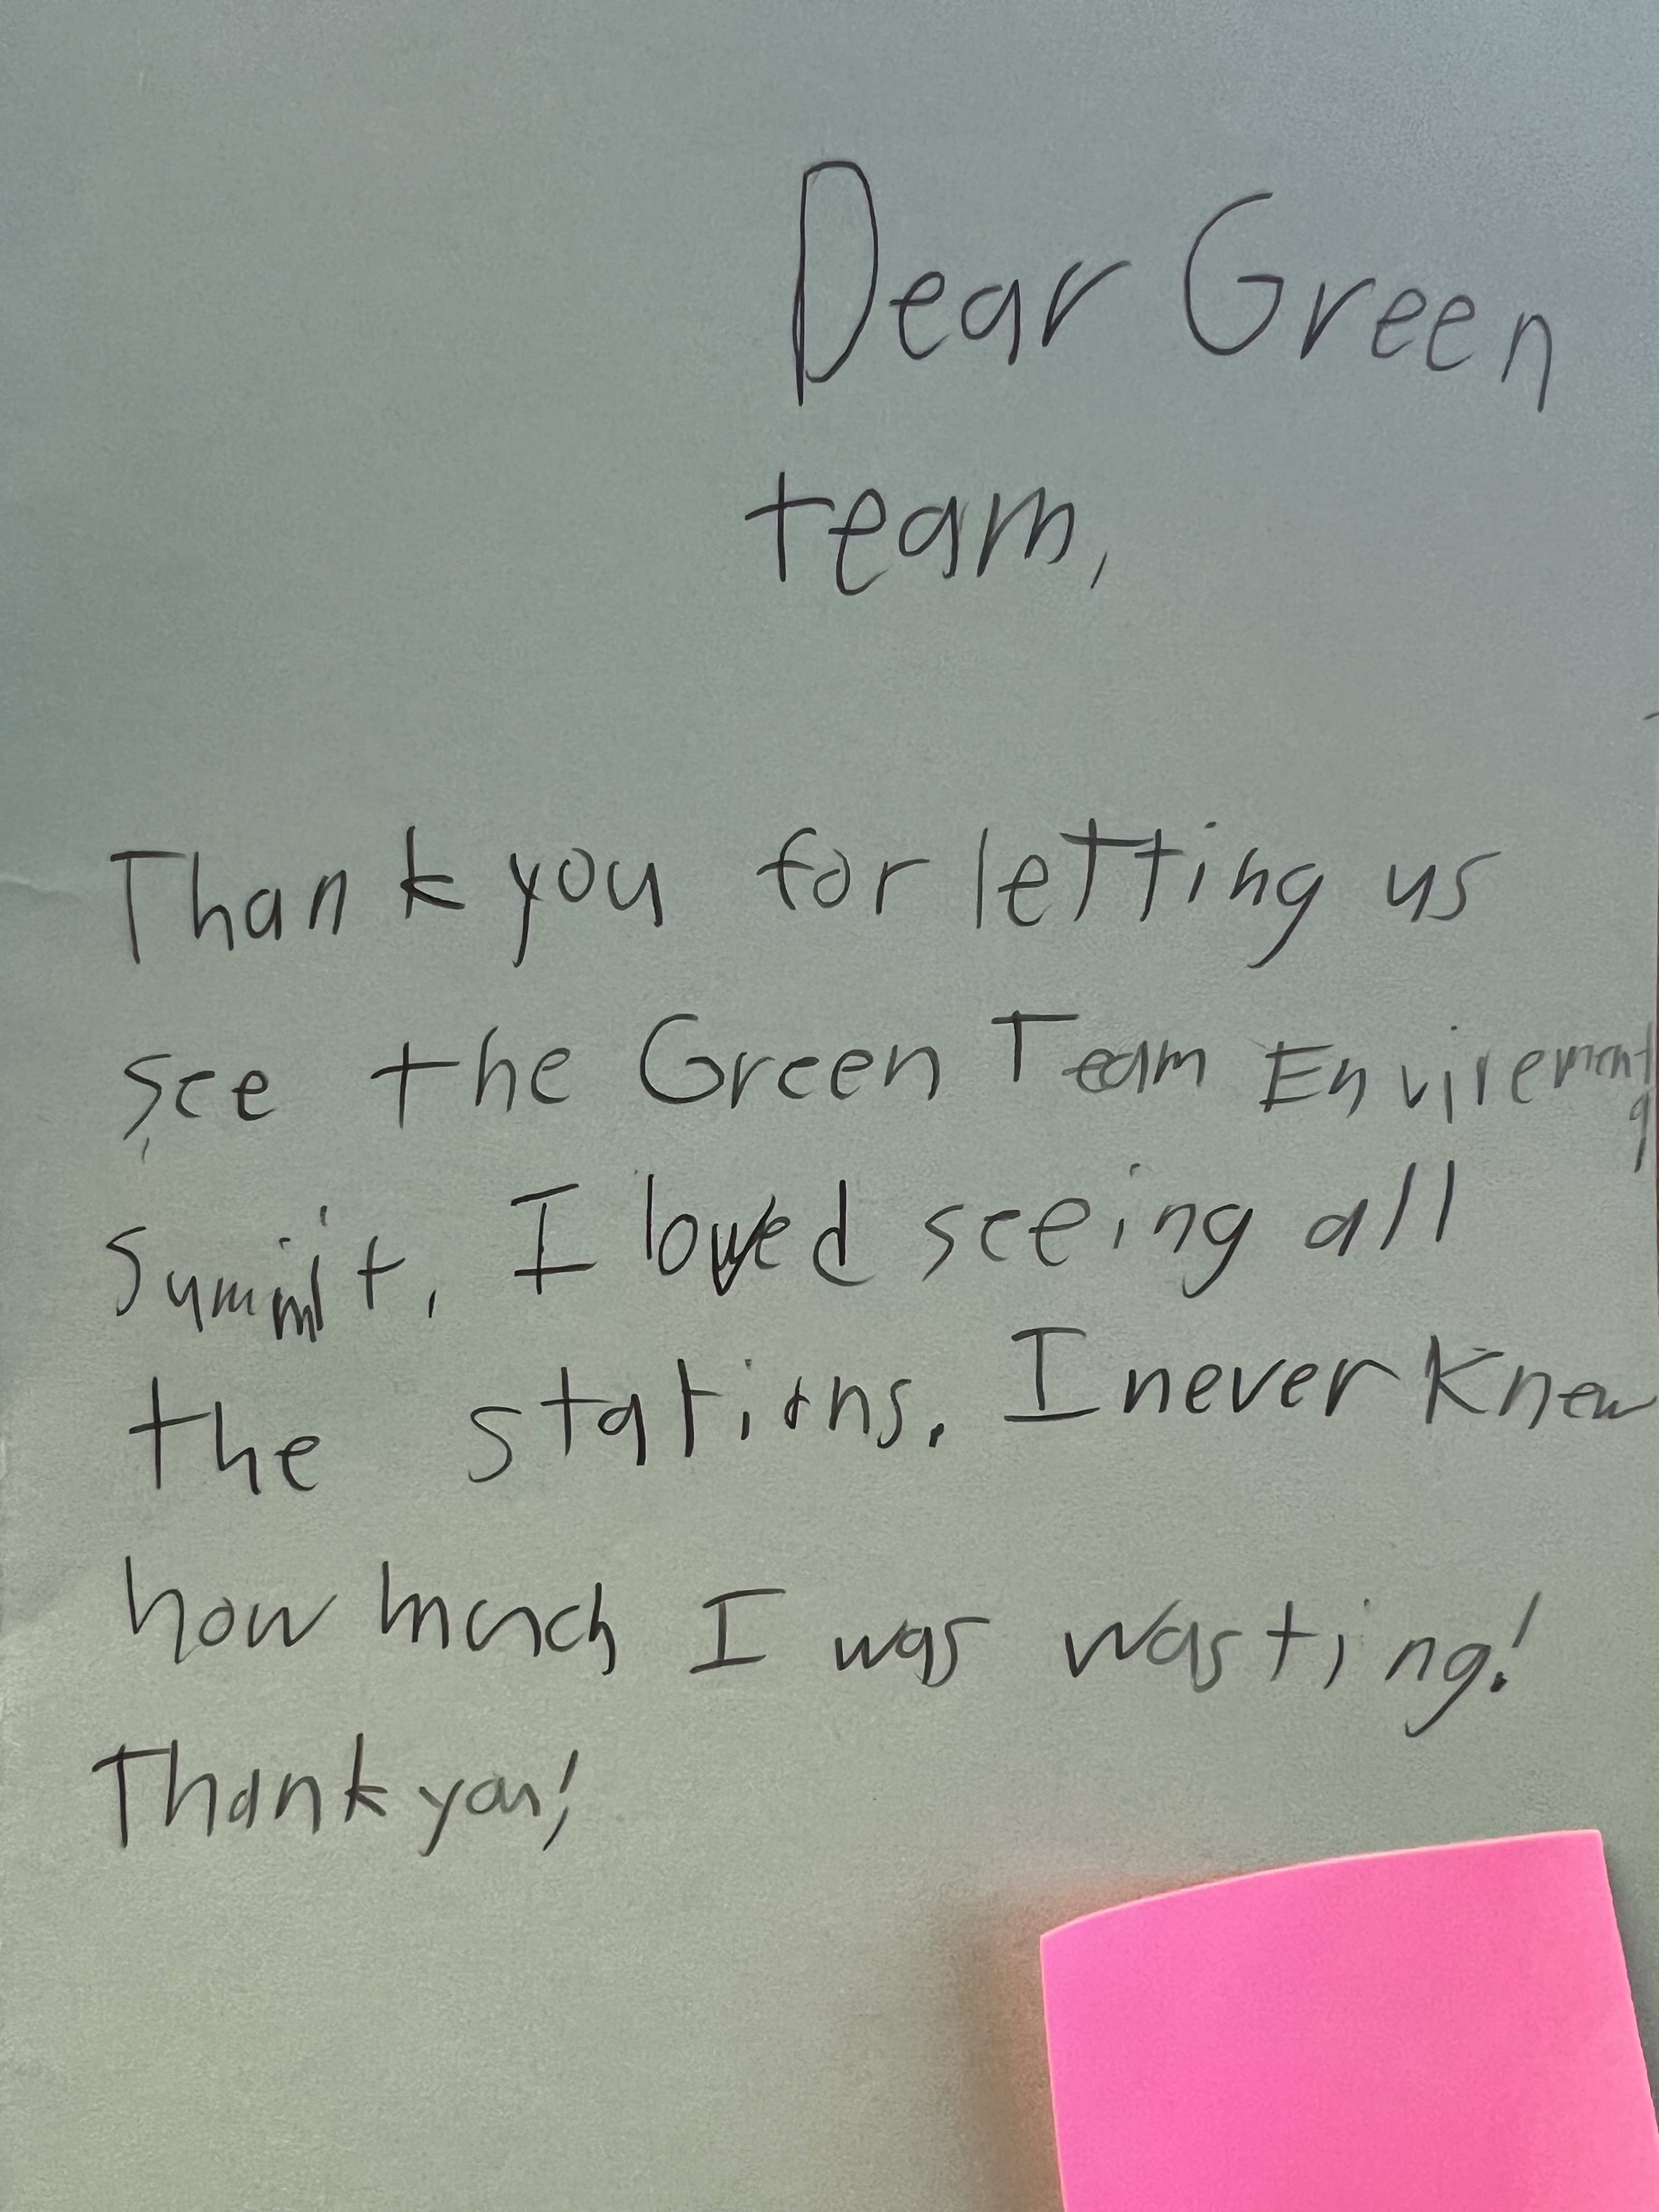 Dear Green
team,
Thank you for letting us
see the Green Team Envirement
Summit. I loved seeing all
the stations. I never knew
how much I was wasting!
Thank you!